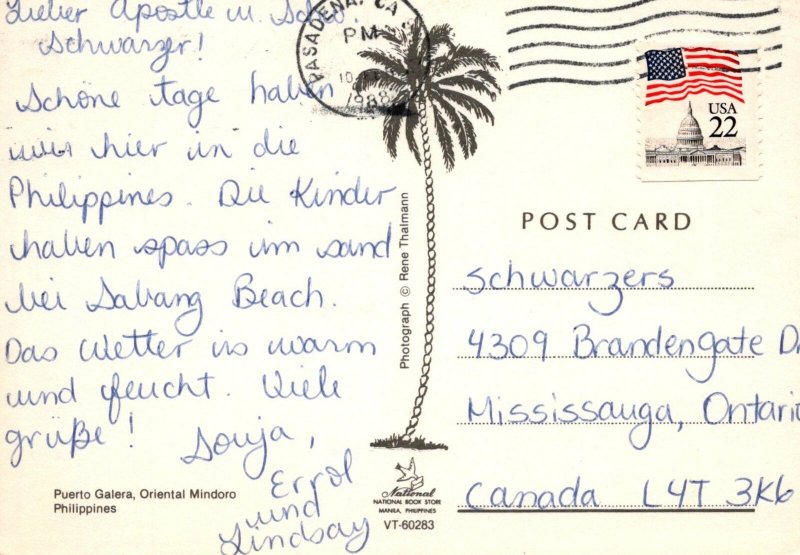 Lieber Apostle u. Schw.
Schwarzer!
Schöne tage haben
wir hier in die
Philippines. Die Kinder
haben spass im sand
bei Sabang Beach.
Das Wetter is warm
und feucht. Viele
grüße! Sonja,
Errol
und
Lindsay
Puerto Galera, Oriental Mindoro
Philippines
PASADENA, CA
PM
10
1988
Photograph © Rene Thalmann
National
NATIONAL BOOK STORE
MANILA, PHILIPPINES
VT-60283
USA
22
POST CARD
Schwarzers
4309 Brandengate D
Mississauga, Ontario
Canada L4T 3K6